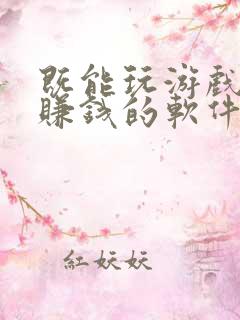 既能玩游戏
賺錢的軟件
紅妖妖